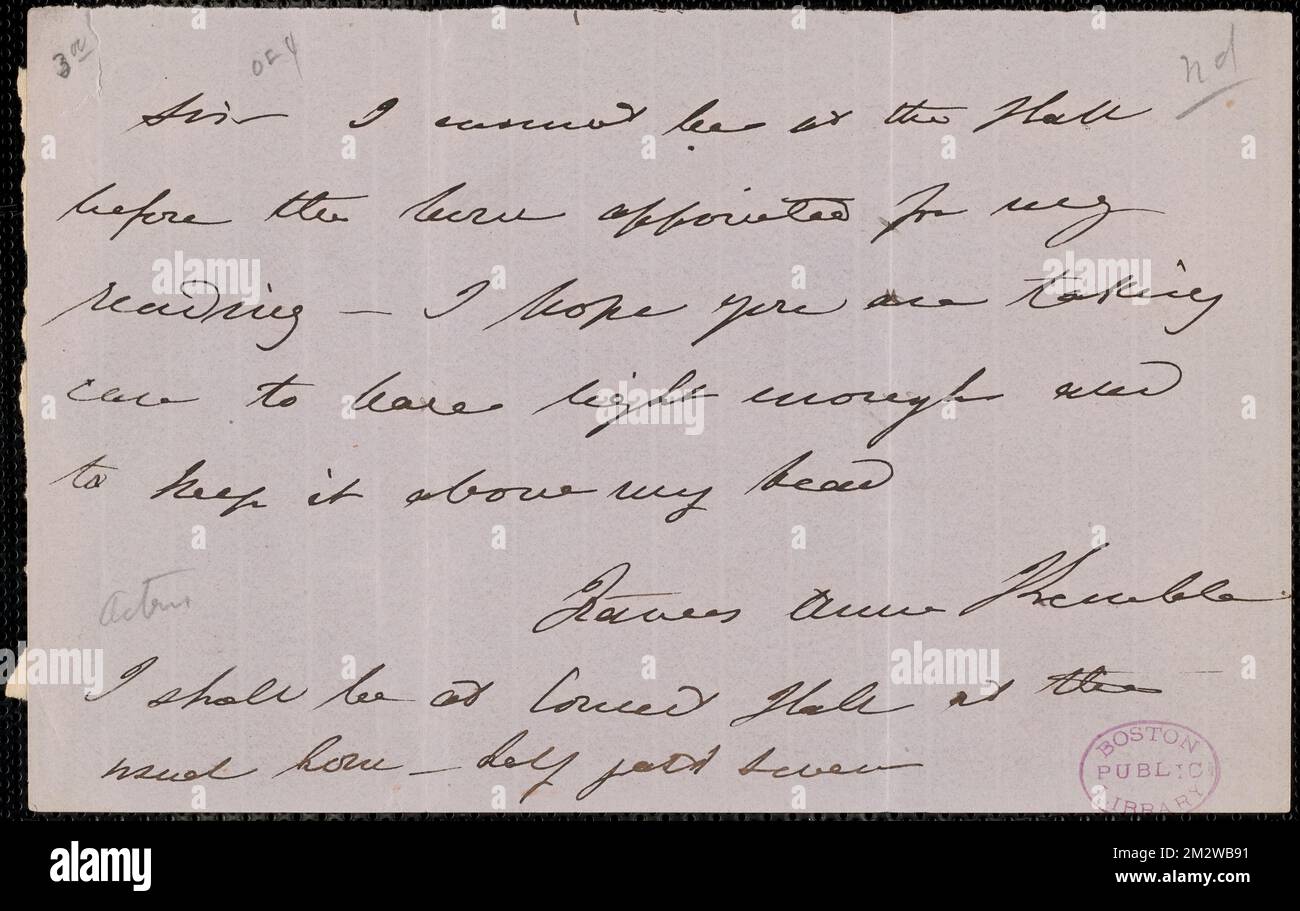 3 00
OF 4
nd
Sir I cannot be at the Hall
before the hour appointed for my
reading — I hope you are taking
care to have light enough and
to keep it above my head
Frances Anne Kemble
Actress
I shall be at Hall at the
usual hour — half past seven
BOSTON
PUBLIC
LIBRARY
alamy
Image ID: 2M2WB91
www.alamy.com